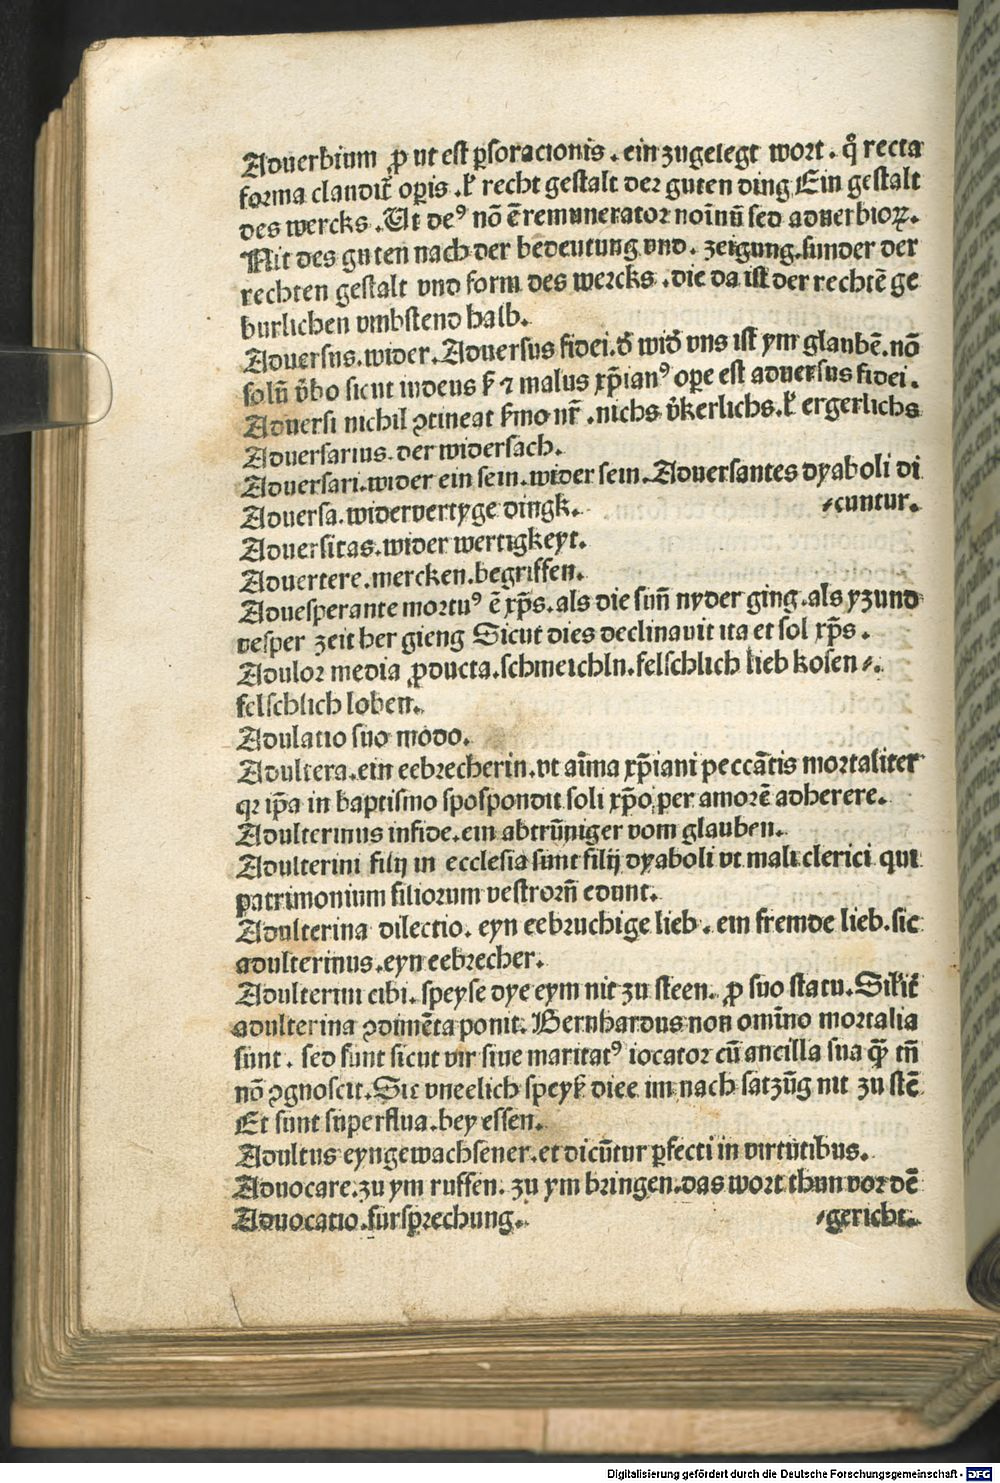 Aduerbium ꝓ ut est ꝑsoracionis . ein zugelegt wort . qͦ recta
forma claudit᷑ oꝑis . ł recht gestalt der guten ding Ein gestalt
des wercks . Ut deꝰ nō ē remunerator noīnū sed aduerbioꝝ.
Nit des guten nach der bedeutung vnd . zeigung.sunder der
rechten gestalt vnd form des wercks . die da ist der rechtē ge
burlichen vmbstend halb.
Aduersus.wider.Aduersus fidei.d᷑ wid᷑ vns ist ym glaubē.nō
solū v᷑bo sicut iudeus ⁊ malus xp̄ianꝰ oꝑe est aduersus fidei.
Aduersi nichil ꝯtineat ſ᷑mo nr̄ . nichs v᷑kerlichs.ł ergerlichs
Aduersarius.der widersach.
Aduersari.wider ein sein.wider sein.Aduersantes dyaboli di
Aduersa.widervertyge dingk. ⸗cuntur.
Aduersitas.wider wertigkeyt.
Aduertere.mercken.begriffen.
Aduesperante mortuꝰ ē xp̄s.als die sun̄ nyder ging.als yzund
vesper zeit her gieng Sicut dies declinauit ita et sol xp̄s .
Adulor media ꝓducta.schmeichln.felschlich lieb kosen ⸗.
felschlich loben.
Adulatio suo modo.
Adultera.ein eebrecherin.vt aīma xp̄iani peccātis mortaliter
qr ip̄a in baptismo spospondit soli xp̄o per amorē adherere.
Adulterinus infide.ein abtrūniger vom glauben.
Adulterini filij in ecclesia sunt filij dyaboli vt mali clerici qui
patrimonium filiorum vestrorū edunt.
Adulterina dilectio. eyn eebruchige lieb . ein fremde lieb.sic
adulterinus.eyn eebrecher.
Adulterini cibi.speyse dye eym nit zu steen. ꝓ suo statu.Silit᷑
adulterina ꝯdimēta ponit. Bernhardus non omīno mortalia
sunt . sed sunt sicut vir siue maritatꝰ iocator cū ancilla sua q̄ꝫ tn̄
nō ꝯgnoscit.Sic vneelich speyß diee im nach satzūg nit zu stē
Et sunt superflua.bey essen.
Adultus eyngewachsener.et dicūtur ꝑfecti in virtutibus.
Aduocare.zu ym ruffen. zu ym bringen.das wort thun vor dē
Aduocatio.fursprechung. ⸗gericht.
Digitalisierung gefördert durch die Deutsche Forschungsgemeinschaft - DFG